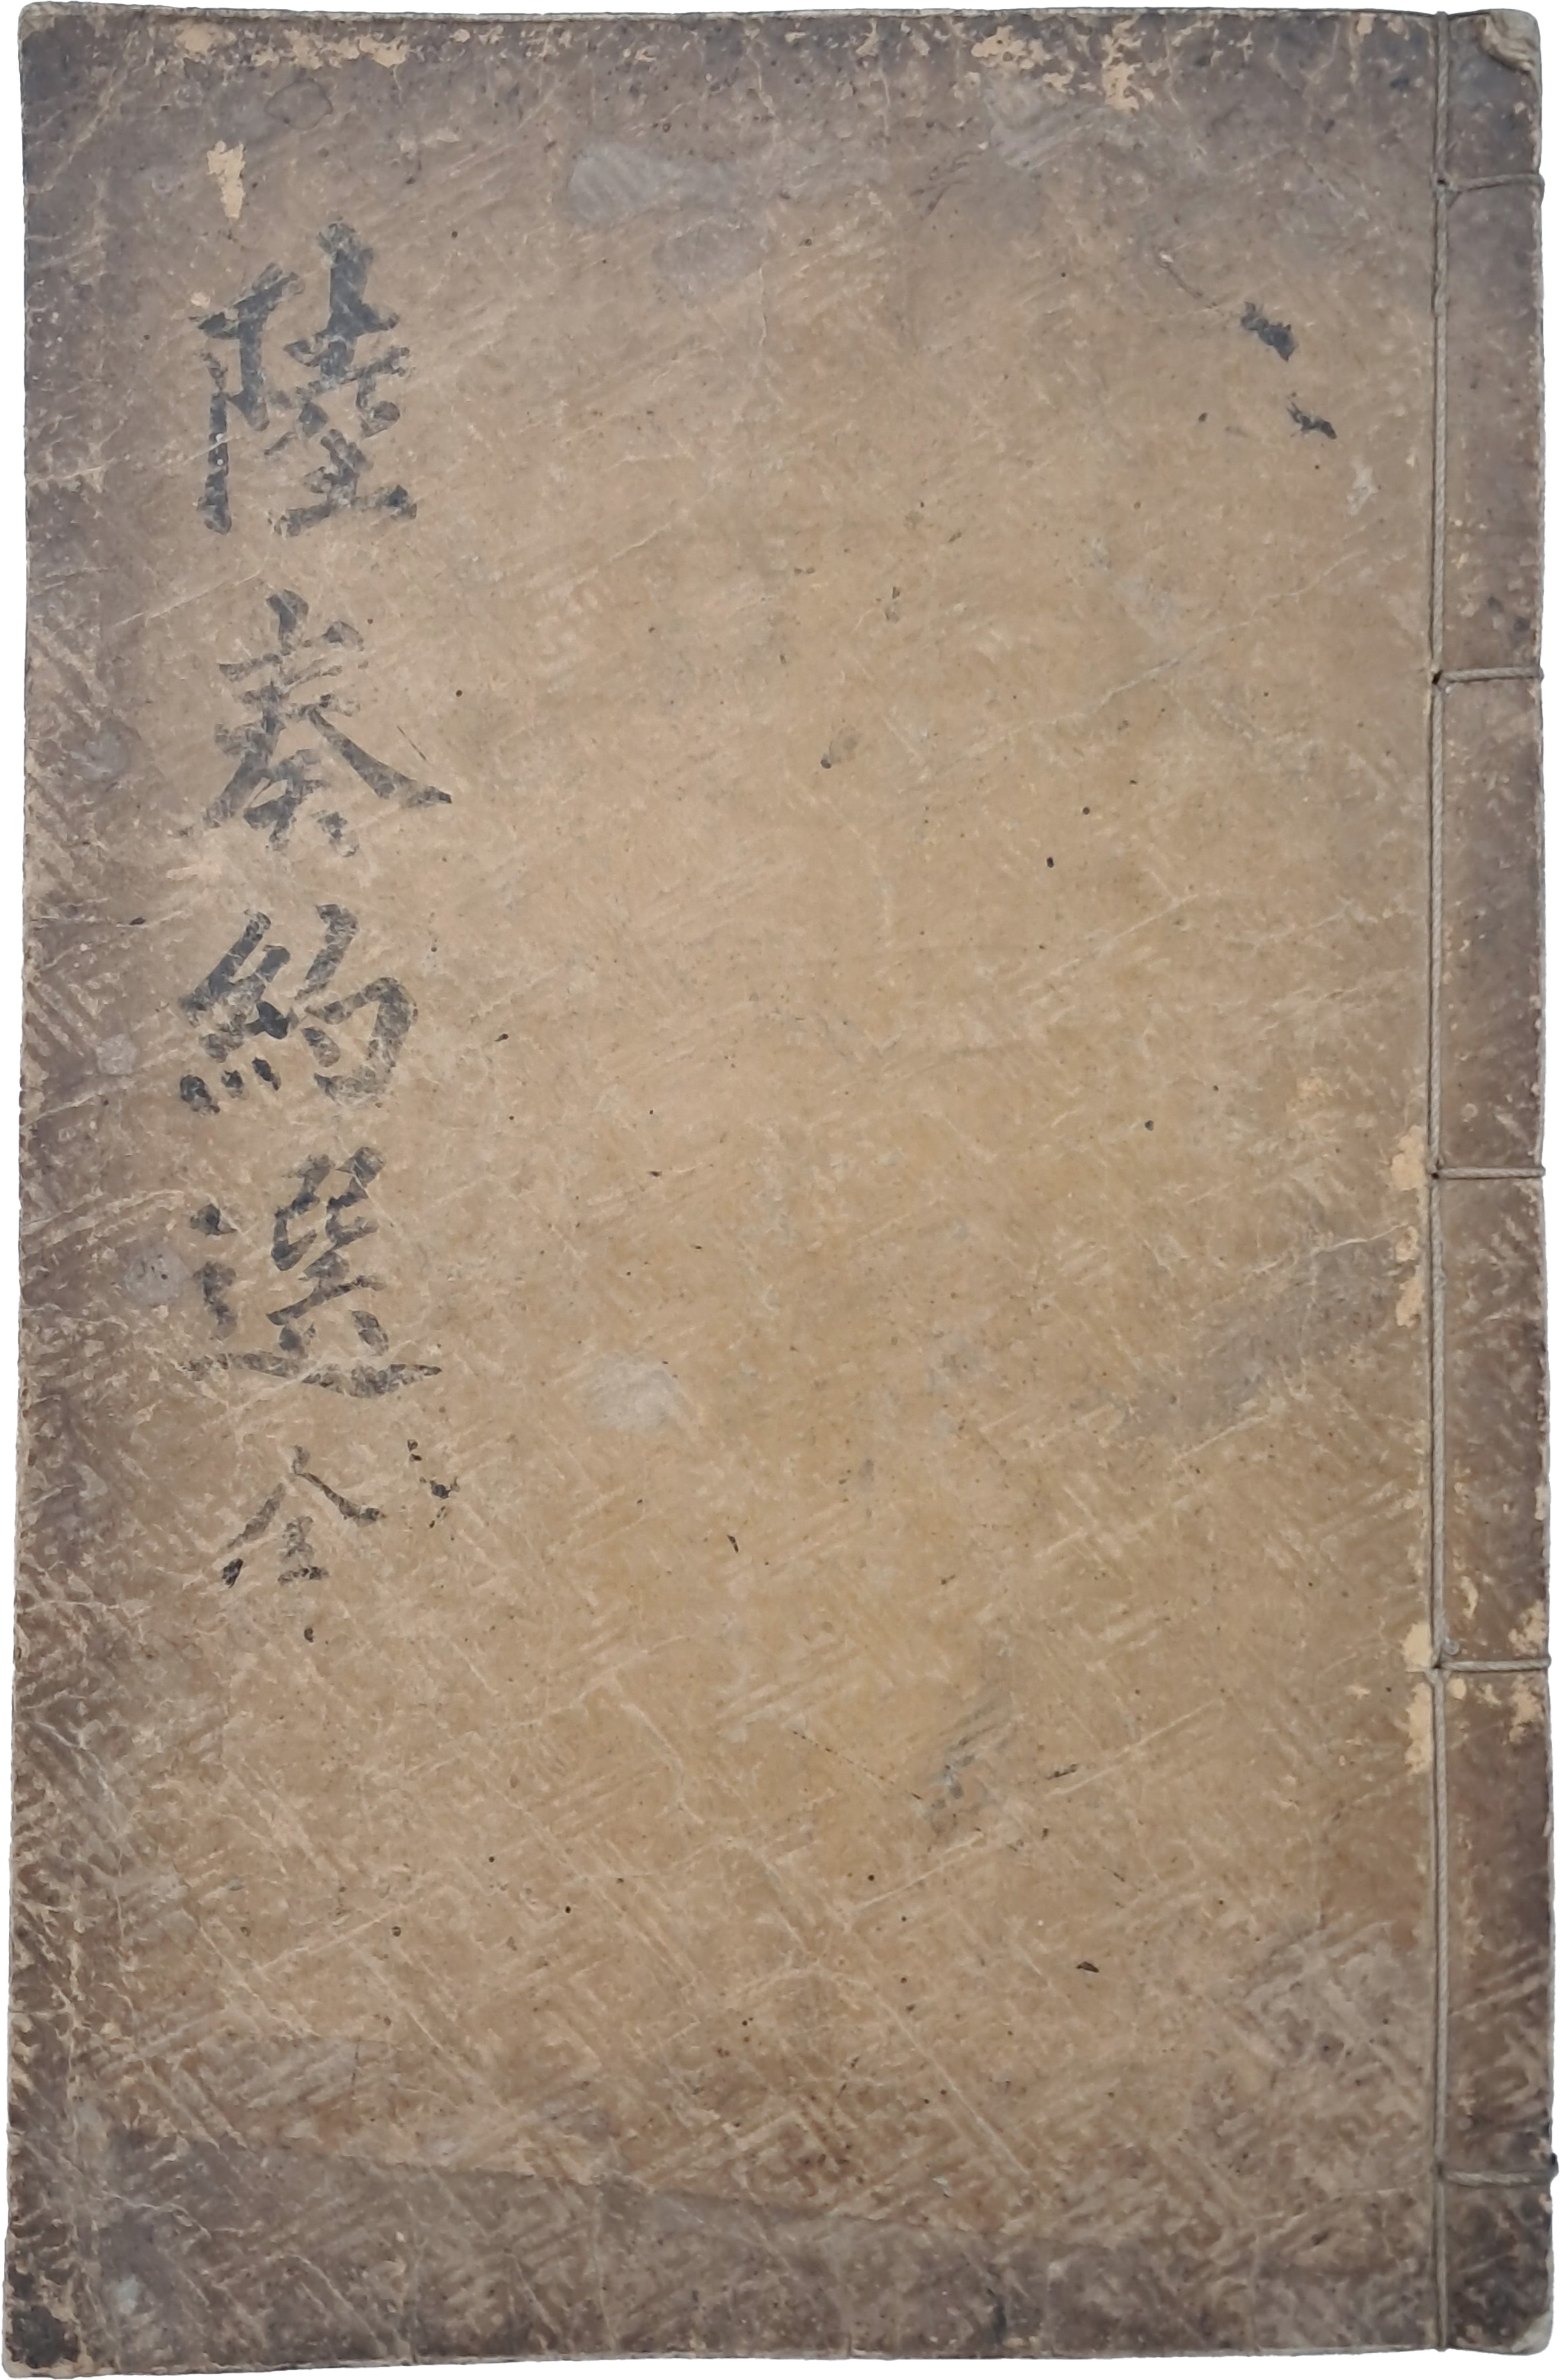 陸奏約選 全